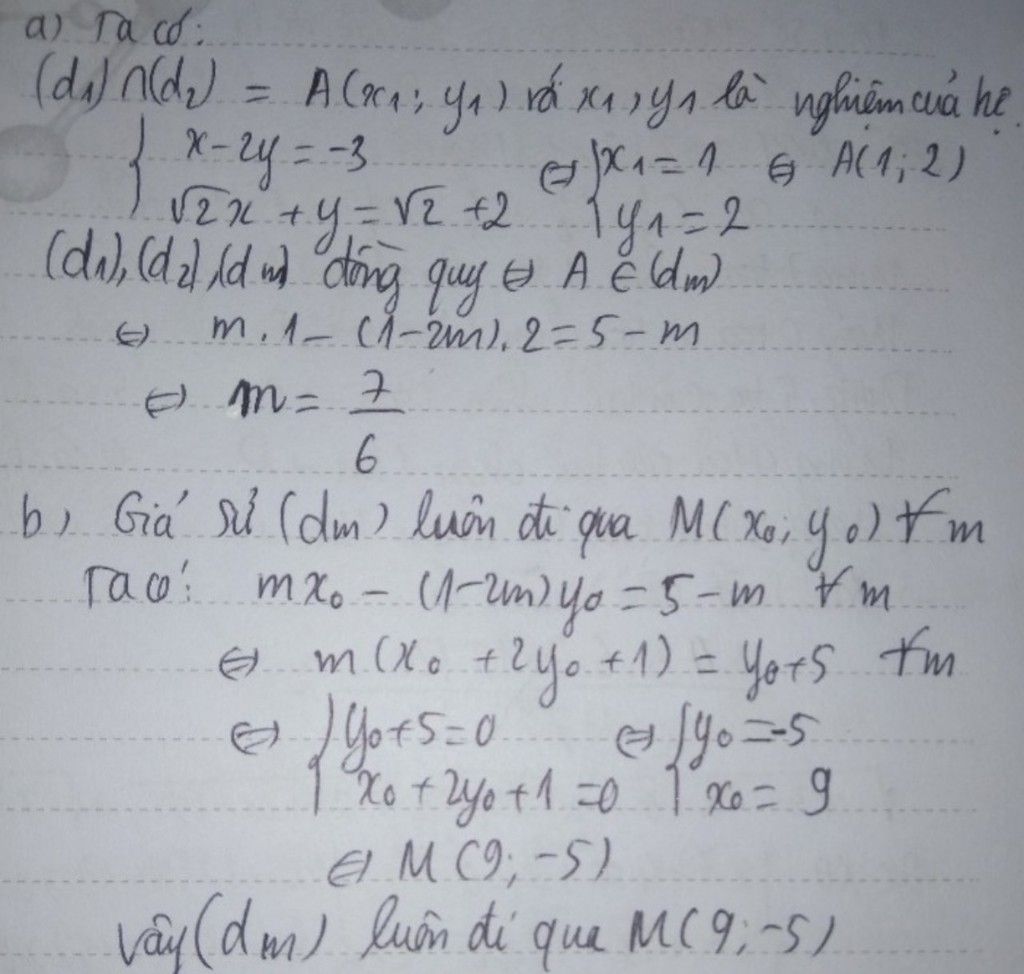 a) Ta có:
(d₁)∩(d₂) = A(x₁; y₁) với x₁, y₁ là nghiệm của hệ.
{ x-2y = -3 ⇔ { x₁ = 1 ⇔ A(1; 2)
√2x + y = √2 + 2 y₁ = 2
(d₁), (d₂), (dm) đồng quy ⇔ A ∈ (dm)
⇔ m.1 - (1-2m).2 = 5 - m
⇔ m = 7/6
b) Giả sử (dm) luôn đi qua M(x₀; y₀) ∀m
Ta có: mx₀ - (1-2m)y₀ = 5-m ∀m
⇔ m(x₀ + 2y₀ + 1) = y₀+5 ∀m
⇔ { y₀+5=0 ⇔ { y₀ = -5
x₀ + 2y₀ + 1 = 0 x₀ = 9
⇔ M(9; -5)
Vậy (dm) luôn đi qua M(9; -5)